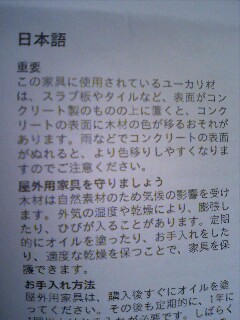 日本語
重要
この家具に使用されているユーカリ材
は、スラブ板やタイルなど、表面がコン
クリート製のものの上に置くと、コンク
リートの表面に木材の色が移るおそれが
あります。雨などでコンクリートの表面
がぬれると、より色移りしやすくなりま
すのでご注意ください。
屋外用家具を守りましょう
木材は自然素材のため気候の影響を受け
ます。外気の湿度や乾燥により、膨張し
たり、ひびが入ることがあります。定期
的にオイルを塗ったり、お手入れをした
り、適度な乾燥を保つことで、家具を保
護できます。
お手入れ方法
屋外用家具は、購入後すぐにオイルを塗
ってください。その後も定期的に、1年に
お手入れが必要です。しばらく